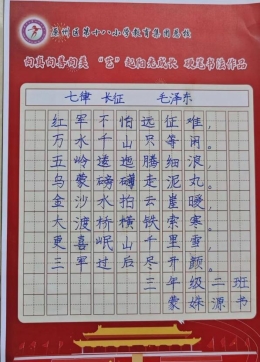 原州区第十八小学教育集团总校
向真向善向美 “艺”起向光成长 硬笔书法作品
七律 长征 毛泽东
红军不怕远征难，
万水千山只等闲。
五岭逶迤腾细浪，
乌蒙磅礴走泥丸。
金沙水拍云崖暖，
大渡桥横铁索寒。
更喜岷山千里雪，
三军过后尽开颜。
三年级二班
蒙姝源书